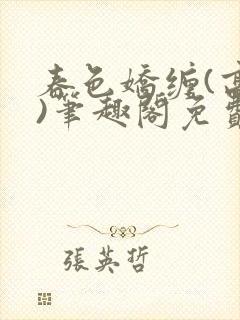 春色嬌纏(高
)筆趣閣免費
張英哲